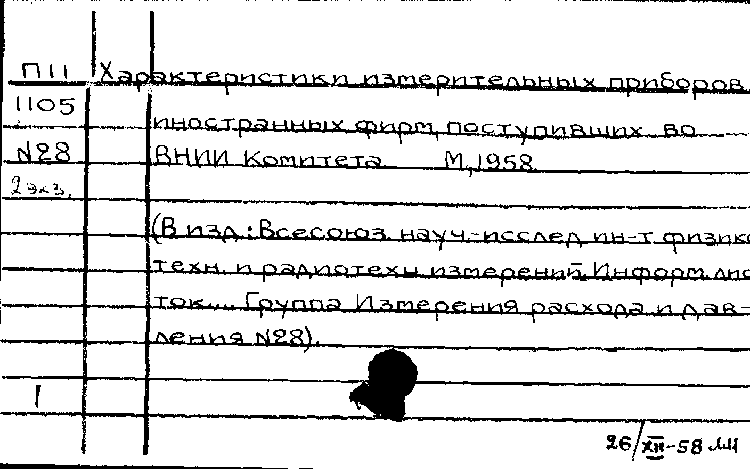 П11 Характеристики измерительных приборов
1105
иностранных фирм, поступивших во
№28 ВНИИ Комитета М., 1958
2 экз.
(В изд.: Всесоюз. науч.-исслед. ин-т физико
техн. и радиотехн измерений. Информ лис
ток... Группа Измерения расхода и дав-
ления №28).
1
26/XII-58